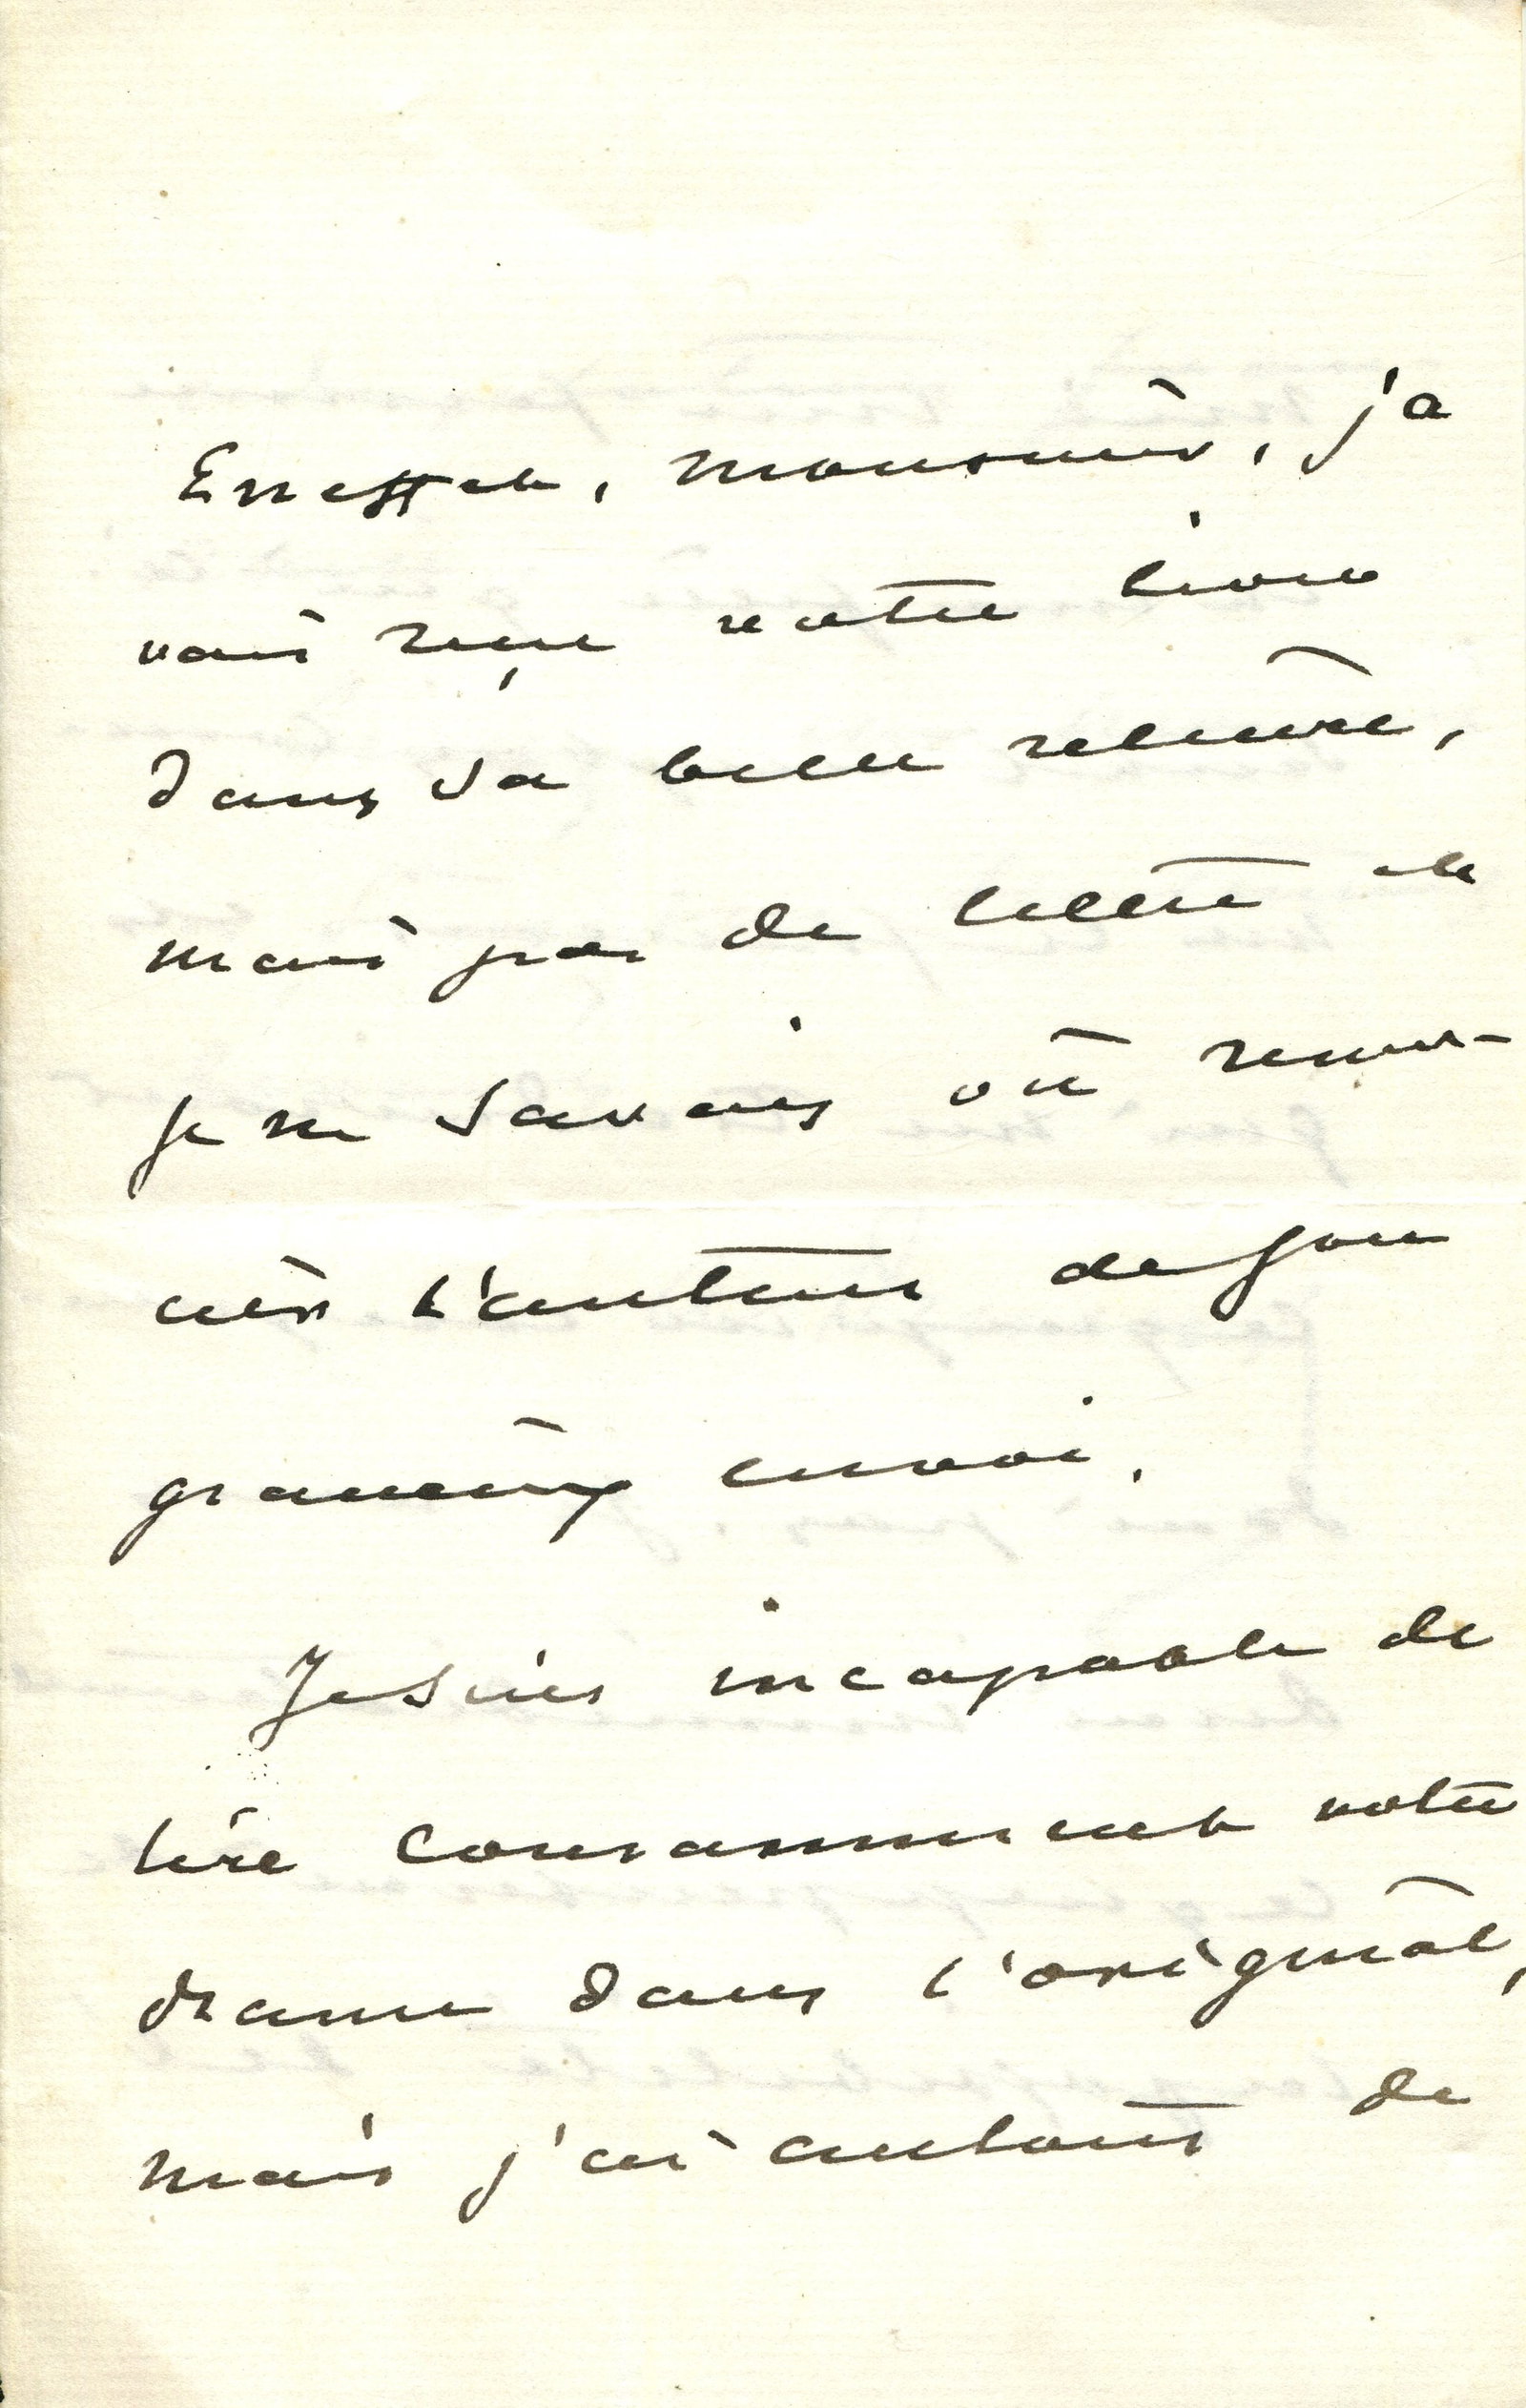 En effet, Monsieur, j'a
vais reçu votre livre
dans sa belle reliure,
mais pas de lettre et
je ne savais où remer-
cier l'auteur de son
gracieux envoi.
Je suis incapable de
lire couramment votre
drame dans l'original,
mais j'ai autour de